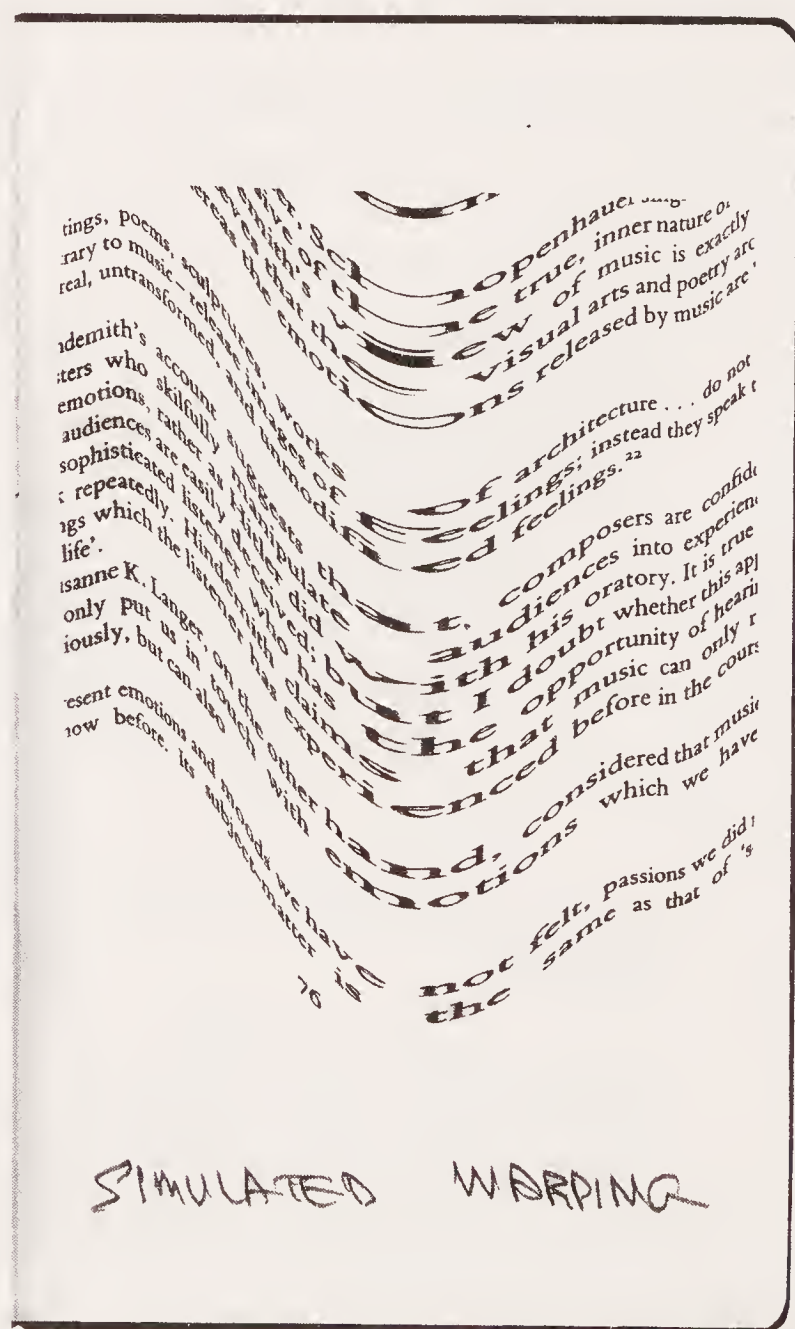 er, Schopenhauer sing-
ive of the true, inner nature of
emith's view of music is exactly
eves that the visual arts and poetry are
ereas the emotions released by music are
tings, poems, sculptures, works of architecture . . . do not
rary to music – release images of feelings; instead they speak t
real, untransformed, and unmodified feelings.²²
ndemith's account suggests that composers are confide
sters who skilfully manipulate audiences into experien
emotions, rather as Hitler did with his oratory. It is true
audiences are easily deceived; but I doubt whether this appl
sophisticated listener who has the opportunity of heari
k repeatedly. Hindemith claims that music can only r
ngs which the listener has experienced before in the cours
life'.
usanne K. Langer, on the other hand, considered that music
only put us in touch with emotions which we have
iously, but can also
resent emotions and moods we have not felt, passions we did n
now before. its subject-matter is the same as that of 's
76
SIMULATED WARPING